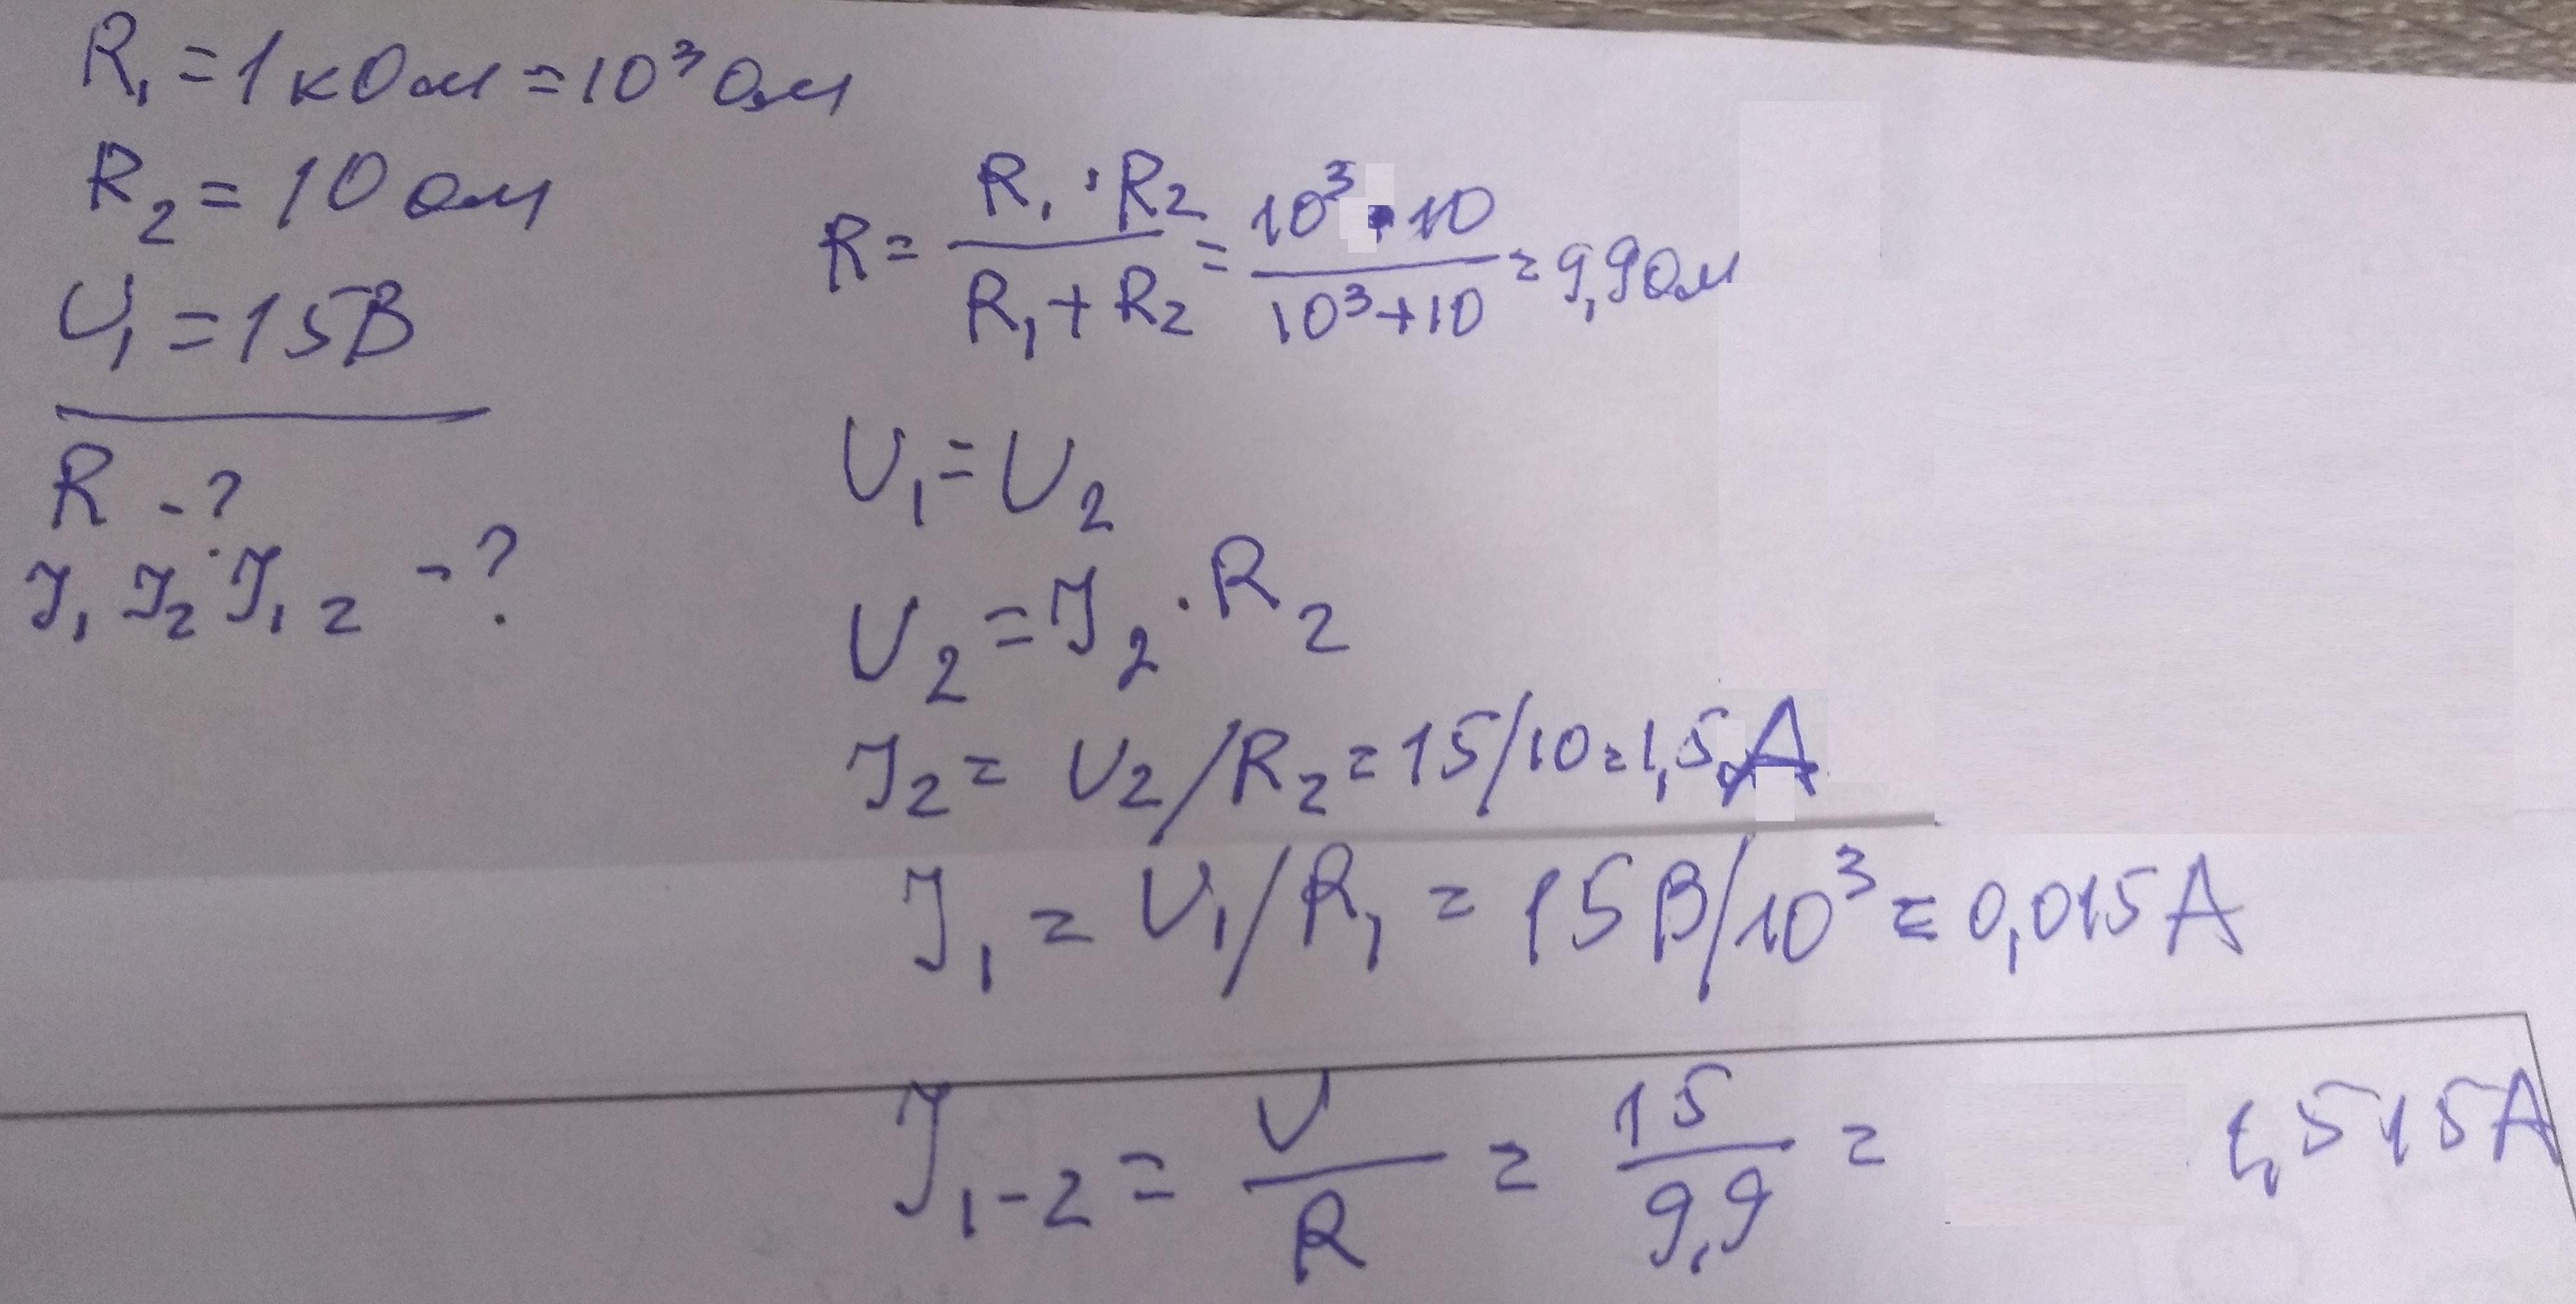 R₁ = 1 кОм = 10³ Ом
R₂ = 10 Ом
U₁ = 15В
R - ?
J₁ J₂ J₁₂ - ?
R = (R₁ · R₂)/(R₁ + R₂) = (10³ · 10)/(10³ + 10) = 9,9 Ом
U₁ = U₂
U₂ = J₂ · R₂
J₂ = U₂/R₂ = 15/10 = 1,5 A
J₁ = U₁/R₁ = 15 В/10³ = 0,015 A
J₁₋₂ = U/R = 15/9,9 = 1,515 A